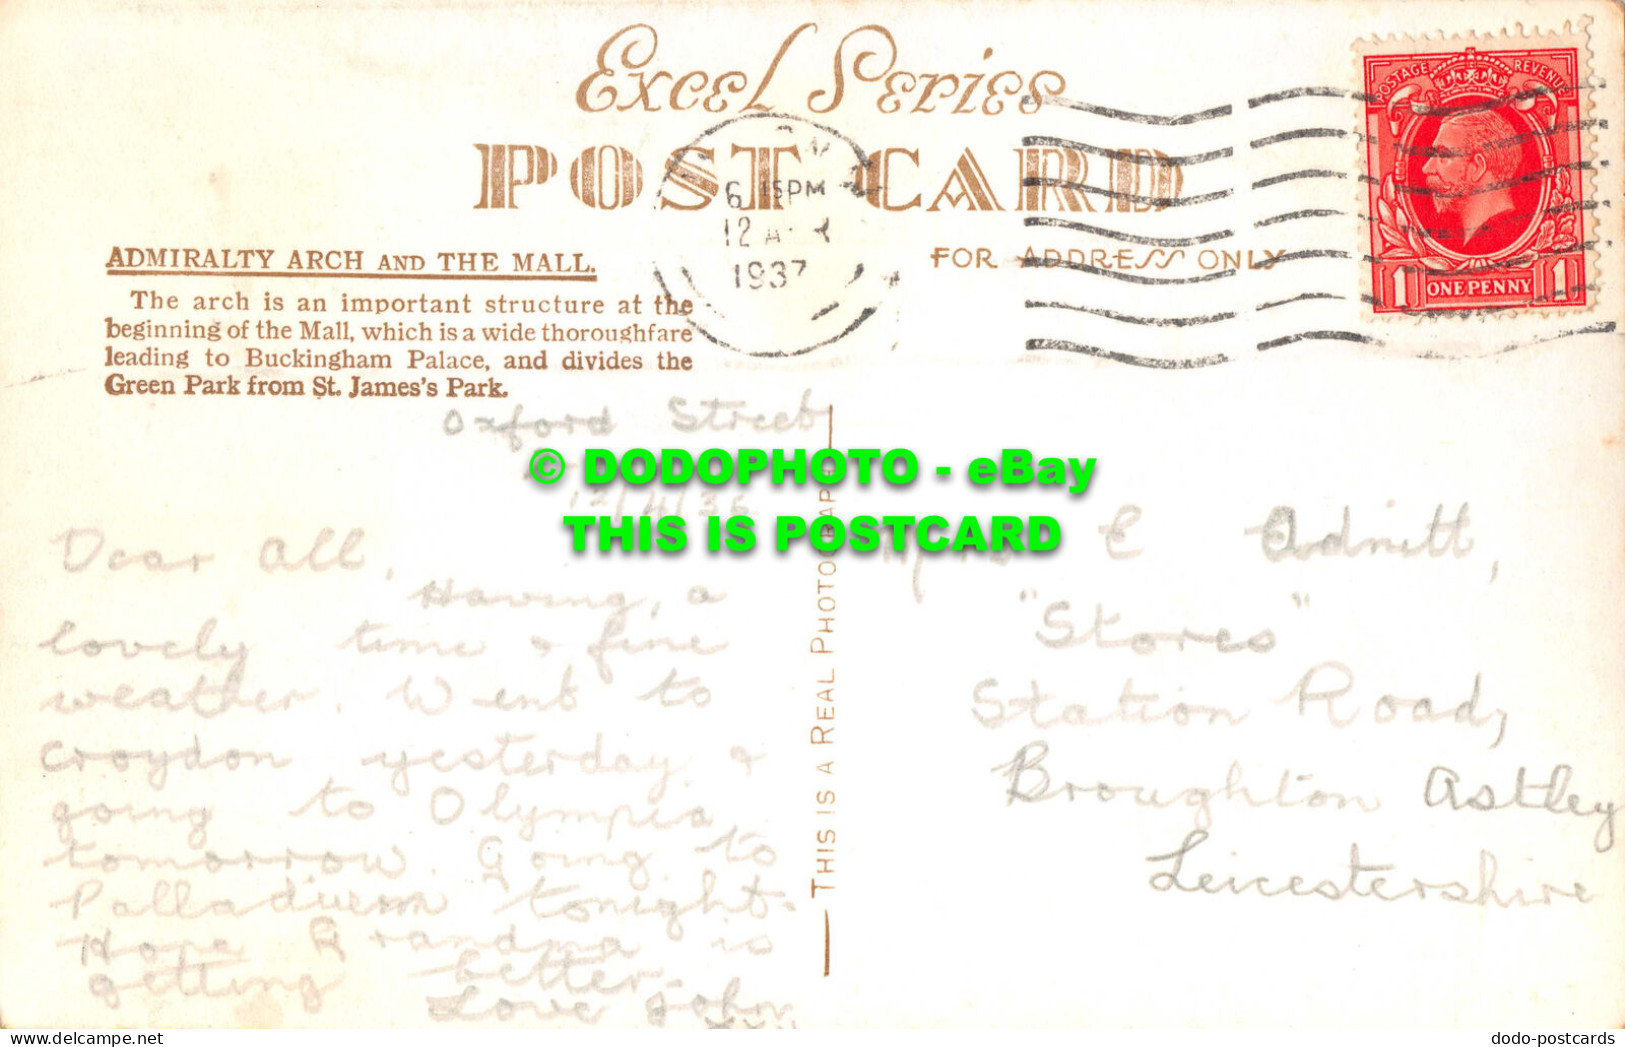 Excel Series
POST CARD
FOR ADDRESS ONLY
POSTAGE REVENUE
1 ONE PENNY 1
6 15PM
12 A R
1937
ADMIRALTY ARCH AND THE MALL.
The arch is an important structure at the
beginning of the Mall, which is a wide thoroughfare
leading to Buckingham Palace, and divides the
Green Park from St. James's Park.
Oxford Street
12/4/36
Dear All,
Having a
lovely time & fine
weather. Went to
Croydon yesterday &
going to Olympia
tomorrow. Going to
Palladium tonight.
Hope Grandma is
getting better.
Love John
THIS IS A REAL PHOTOGRAPH
E Adnitt,
"Stores"
Station Road,
Broughton Astley
Leicestershire
© DODOPHOTO - eBay
THIS IS POSTCARD
dodo-postcards